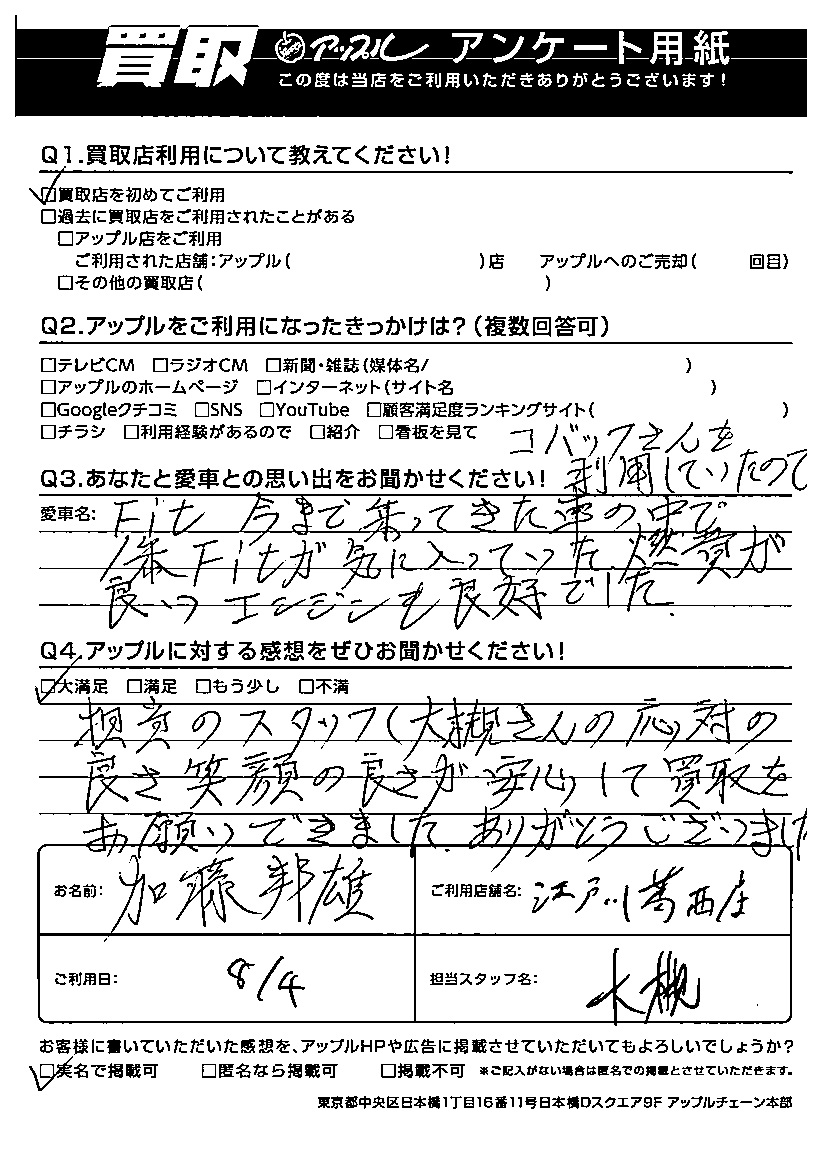 買取 アップル アンケート用紙
この度は当店をご利用いただきありがとうございます!
Q1.買取店利用について教えてください!
☑買取店を初めてご利用
□過去に買取店をご利用されたことがある
□アップル店をご利用
ご利用された店舗:アップル( )店 アップルへのご売却( 回目)
□その他の買取店( )
Q2.アップルをご利用になったきっかけは?(複数回答可)
□テレビCM □ラジオCM □新聞・雑誌(媒体名/ )
□アップルのホームページ □インターネット(サイト名 )
□Googleクチコミ □SNS □YouTube □顧客満足度ランキングサイト( )
□チラシ □利用経験があるので □紹介 □看板を見て コバックさんを
利用していたので
Q3.あなたと愛車との思い出をお聞かせください!
愛車名: Fit 今まで乗ってきた車の中で
1番Fitが気に入っていった.燃費が
良いつエンジンも良好でした.
Q4.アップルに対する感想をぜひお聞かせください!
☑大満足 □満足 □もう少し □不満
担当のスタッフ(大槻さんの応対の
良さ笑顔の良さが安心して買取を
お願いできました.ありがとうございました
お名前: 加藤邦雄 ご利用店舗名: 江戸川葛西店
ご利用日: 8/4 担当スタッフ名: 大槻
お客様に書いていただいた感想を、アップルHPや広告に掲載させていただいてもよろしいでしょうか?
☑実名で掲載可 □匿名なら掲載可 □掲載不可 ※ご記入がない場合は匿名での掲載とさせていただきます。
東京都中央区日本橋1丁目16番11号日本橋Dスクエア9F アップルチェーン本部